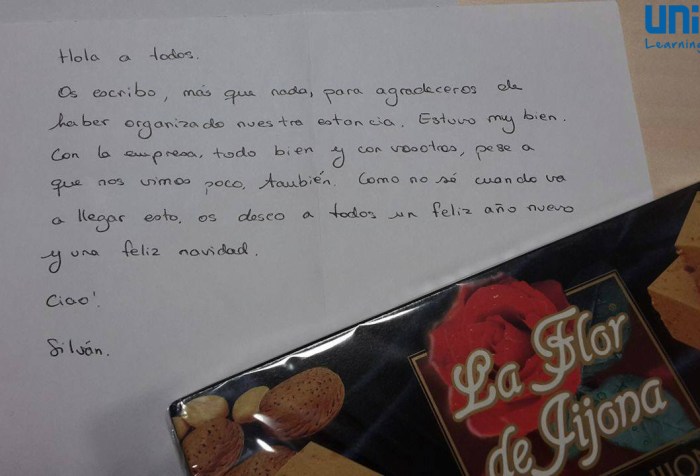 UNI
Learning
Hola a todos.
Os escribo, más que nada, para agradeceros de
haber organizado nuestra estancia. Estuvo muy bien.
Con la empresa, todo bien y con vosotros, pese a
que nos vimos poco, también. Como no sé cuando va
a llegar esto, os deseo a todos un feliz año nuevo
y una feliz navidad.
Ciao!
Silván.
La Flor
de Jijona